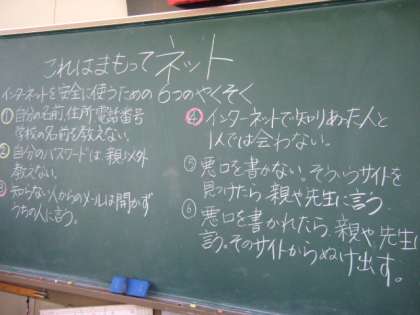 これはまもってネット
インターネットを安全に使うための 6つのやくそく
① 自分の名前、住所、電話番号
学校の名前を教えない。
② 自分のパスワードは、親以外
教えない。
③ 知らない人からのメールは開かず
うちの人に言う。
④ インターネットで知りあった人と
1人では会わない。
⑤ 悪口を書かない。そういうサイトを
見つけたら親や先生に言う
⑥ 悪口を書かれたら、親や先生
言う。そのサイトからぬけ出す。